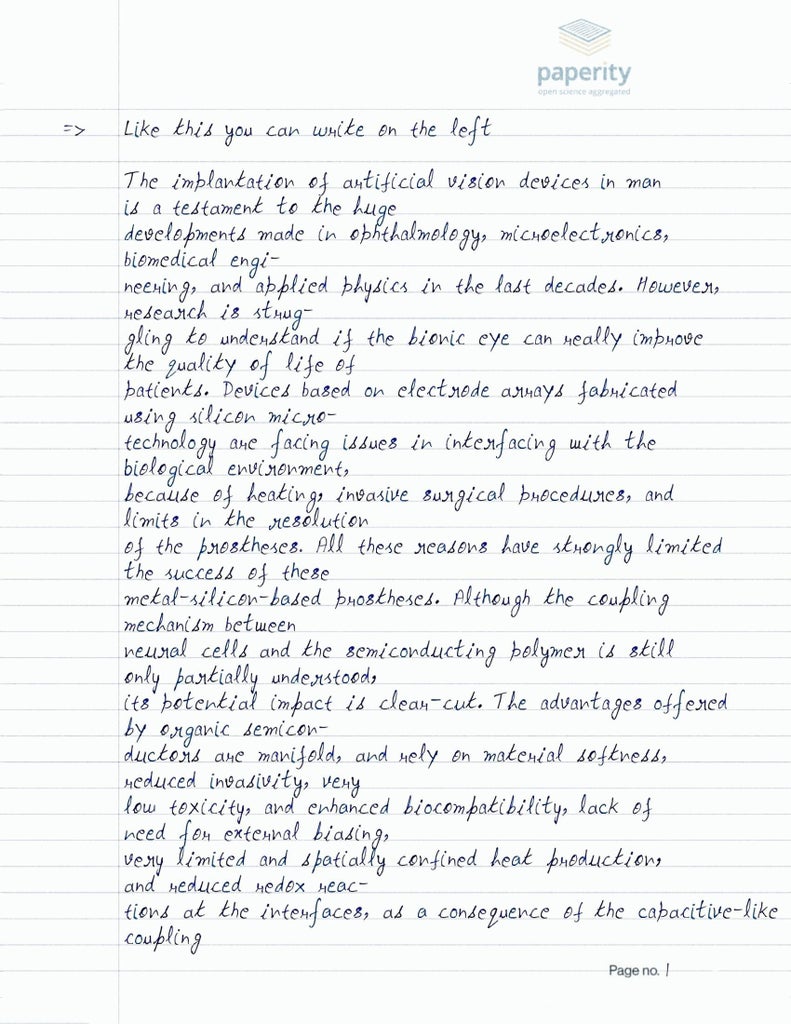 paperity
open science aggregated
=> Like this you can write on the left
The implantation of artificial vision devices in man
is a testament to the huge
developments made in ophthalmology, microelectronics,
biomedical engi-
neering, and applied physics in the last decades. However,
research is strug-
gling to understand if the bionic eye can really improve
the quality of life of
patients. Devices based on electrode arrays fabricated
using silicon micro-
technology are facing issues in interfacing with the
biological environment,
because of heating, invasive surgical procedures, and
limits in the resolution
of the prostheses. All these reasons have strongly limited
the success of these
metal-silicon-based prostheses. Although the coupling
mechanism between
neural cells and the semiconducting polymer is still
only partially understood,
its potential impact is clear-cut. The advantages offered
by organic semicon-
ductors are manifold, and rely on material softness,
reduced invasivity, very
low toxicity, and enhanced biocompatibility, lack of
need for external biasing,
very limited and spatially confined heat production,
and reduced redox reac-
tions at the interfaces, as a consequence of the capacitive-like
coupling
Page no. 1